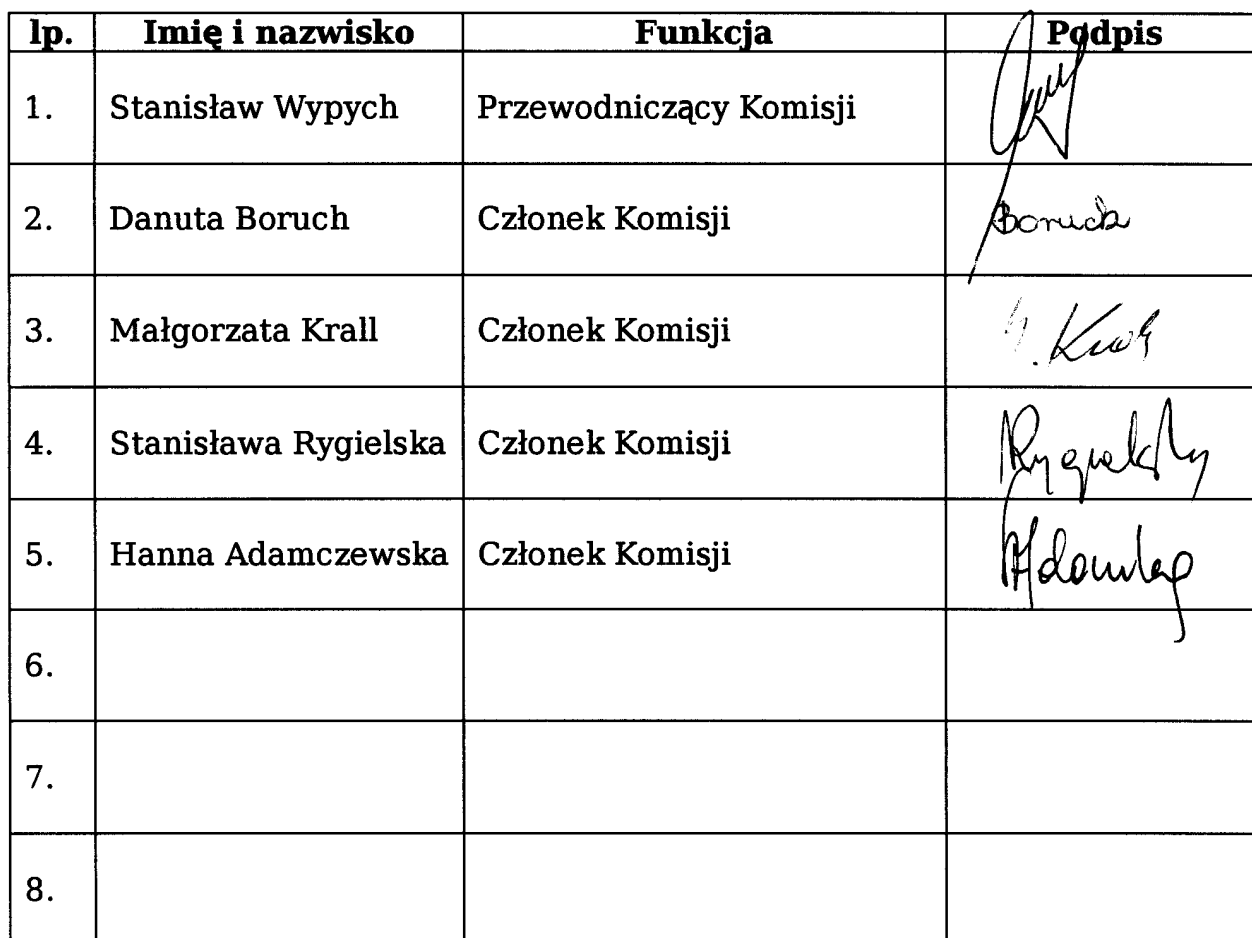 lp. Imię i nazwisko Funkcja Podpis
1. Stanisław Wypych Przewodniczący Komisji
2. Danuta Boruch Członek Komisji Boruch
3. Małgorzata Krall Członek Komisji
4. Stanisława Rygielska Członek Komisji
5. Hanna Adamczewska Członek Komisji
6.
7.
8.